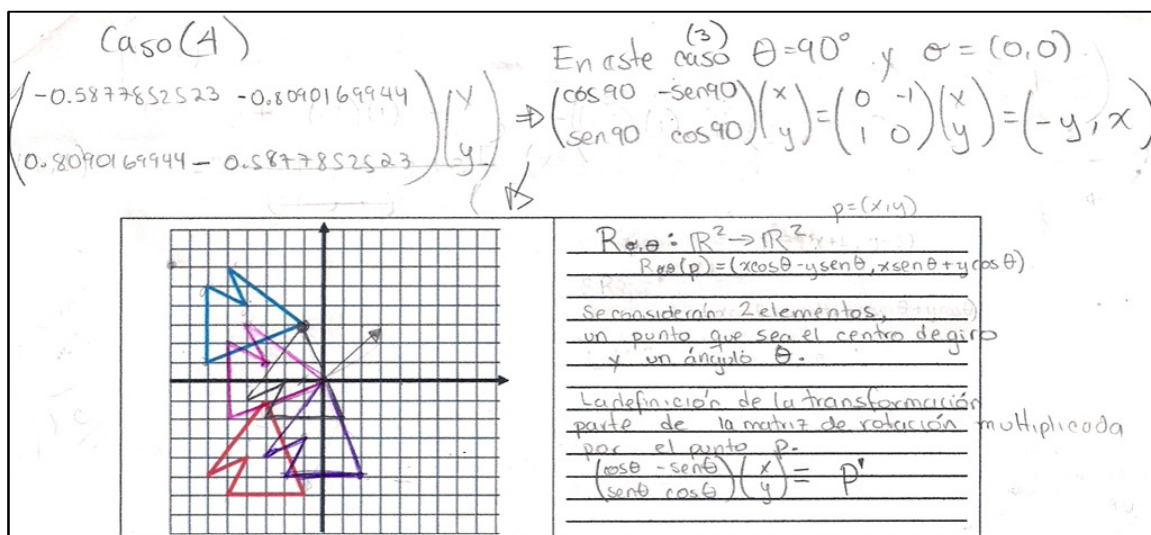 Caso(4)
(-0.5877852523 -0.8090169944
0.8090169944 - 0.5877852523) (y
y)
(3)
En este caso θ=90° y σ=(0,0)
⇒ (cos90 -sen90
sen90 cos90) (x
y) = (0 -1
1 0) (x
y) = (-y, x)
p=(x,y)
Rσ,θ: ℝ² → ℝ²
Rσθ(p)=(xcosθ-ysenθ, xsenθ+ycosθ)
Se consideran 2 elementos,
un punto que sea el centro de giro
y un ángulo θ.
La definición de la transformación
parte de la matriz de rotación multiplicada
por el punto p.
(cosθ -senθ
senθ cosθ) (x
y) = p'